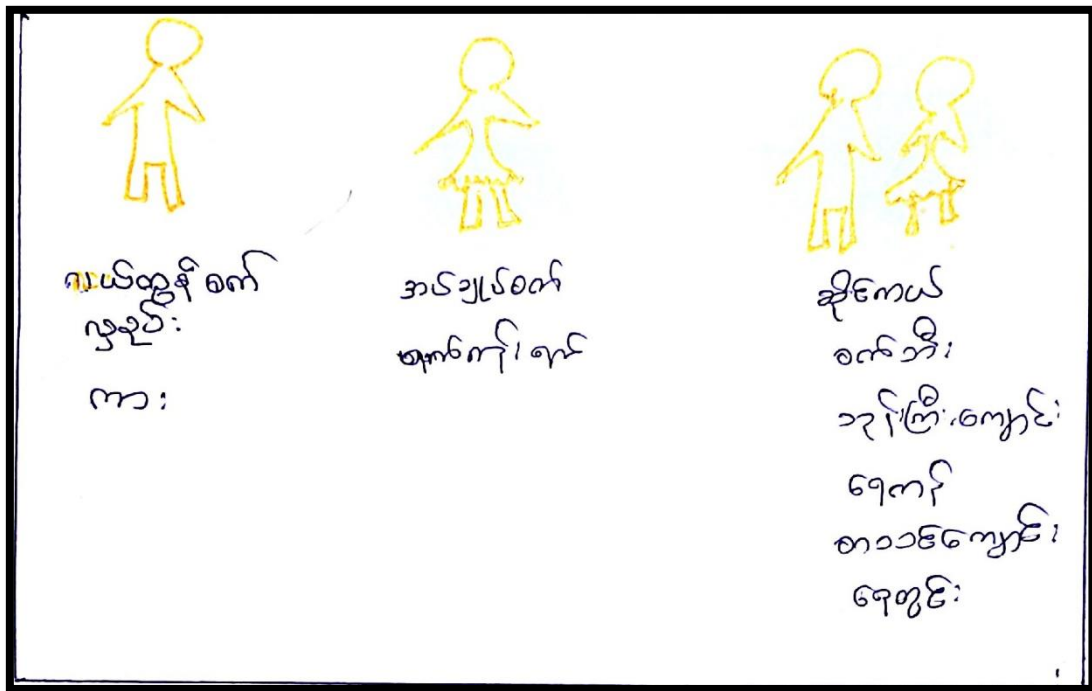 လယ်ထွန်စက်
လှစုပ်း
ကား
အပ်ချုပ်စက်
ရက်ကန်းရက်
ဆိုင်ကယ်
စက်ဘီး
ဘုန်းကြီးကျောင်း
ရေကန်
စာသင်ကျောင်း
ရေတွင်း